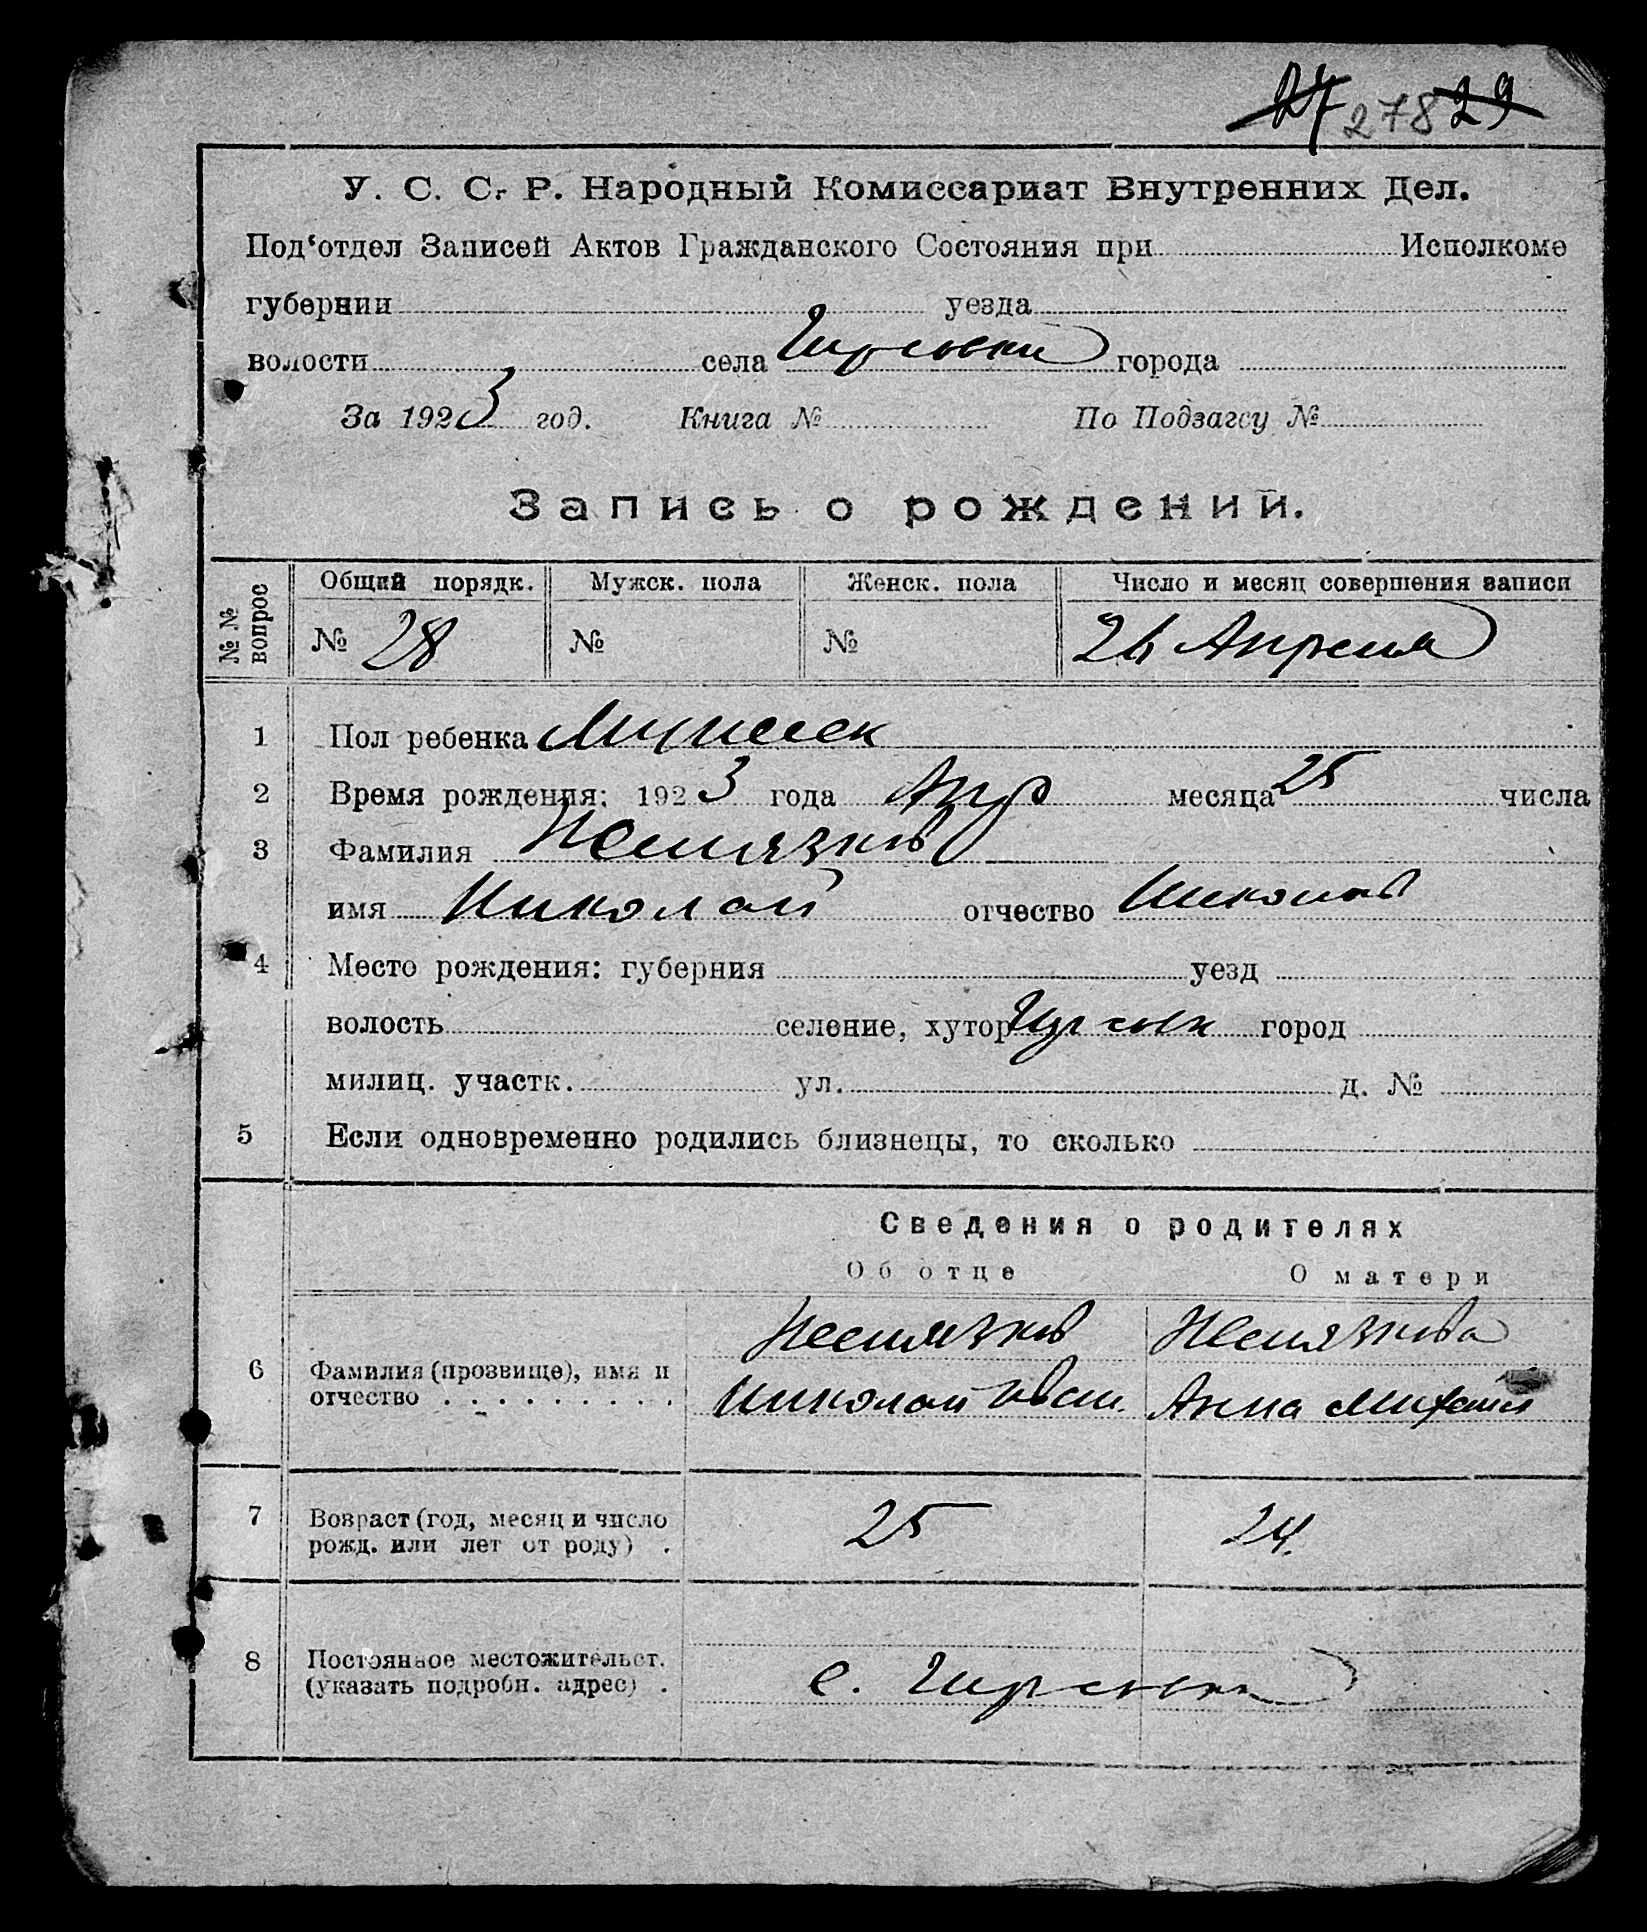 27 278 29
У. С. С. Р. Народный Комиссариат Внутренних Дел.
Под‘отдел Записей Актов Гражданского Состояния при Исполкоме
губернии уезда
волости села города
За 1923 год. Книга № По Подзагсу №
Запись о рождении.
№ № вопрос Общий порядк. Мужск. пола Женск. пола Число и месяц совершения записи
№ 28 № № 26 Апреля
1 Пол ребенка Мужеск
2 Время рождения: 1923 года Апр месяца 25 числа
3 Фамилия
имя Николай отчество Никола
4 Место рождения: губерния уезд
волость селение, хутор город
милиц. участк. ул. д. №
5 Если одновременно родились близнецы, то сколько
Сведения о родителях
Об отце О матери
6 Фамилия (прозвище), имя и
отчество . . . . . . . . . Николай Анна Михаил
7 Возраст (год, месяц и число
рожд. или лет от роду) . 25 24.
8 Постоянное местожительст.
(указать подробн. адрес) . с.